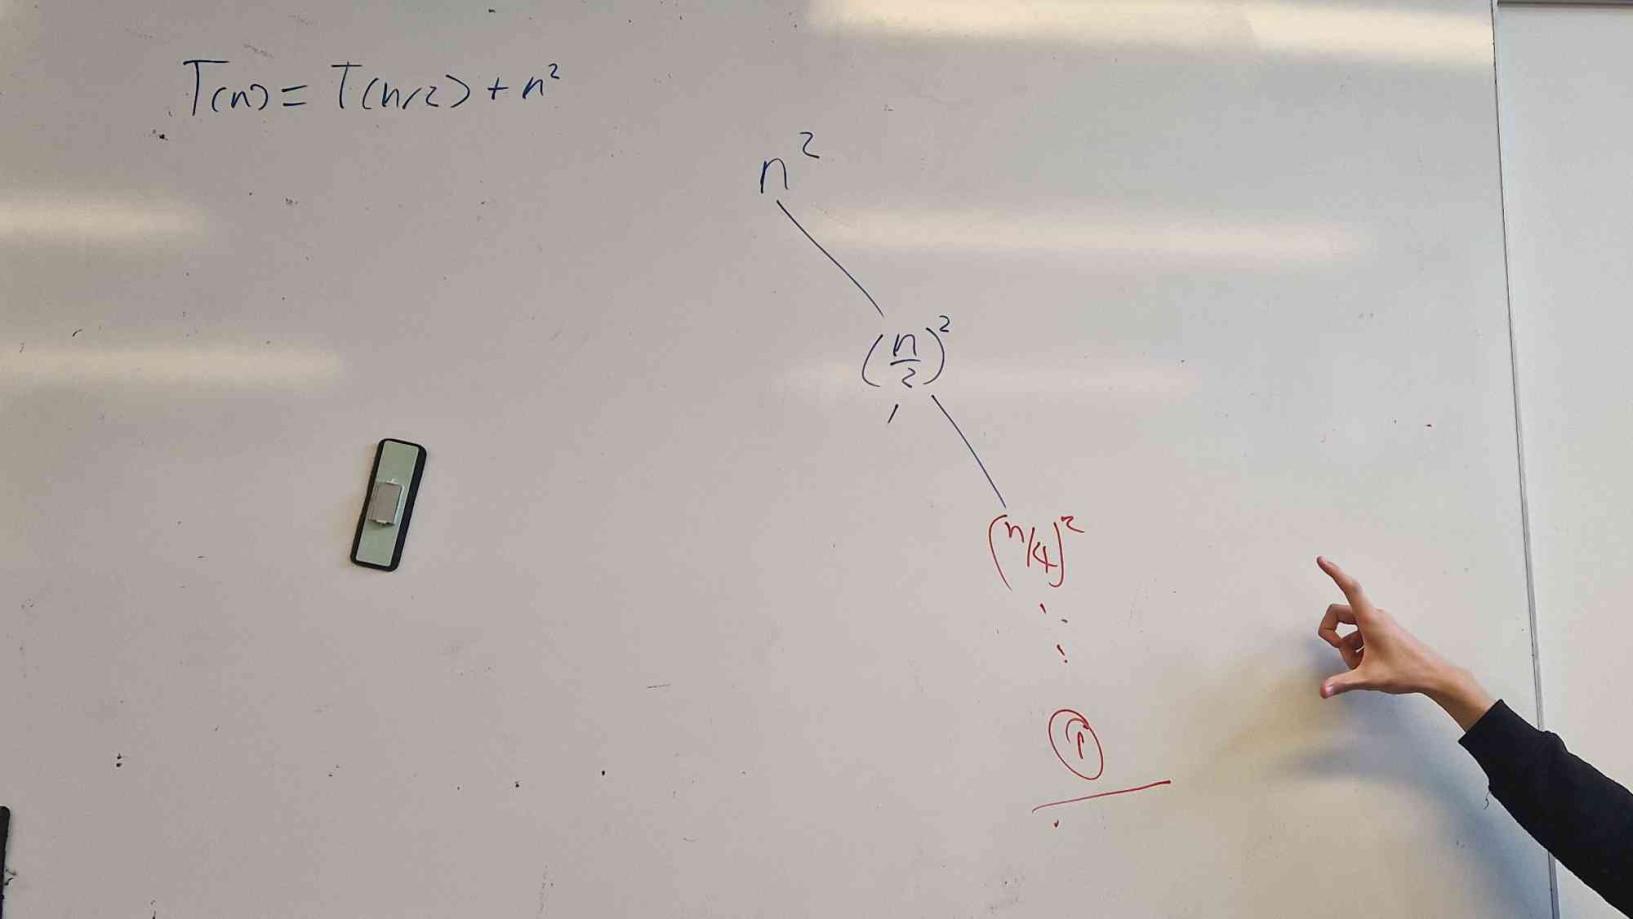 T(n) = T(n/2) + n²
n²
(n/2)²
(n/4)²
⋮
1